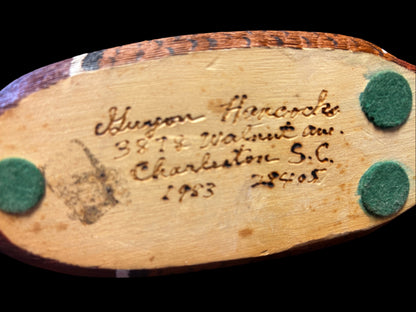 Guyon Hancock
3878 Walnut ave.
Charleston S.C.
1983 28405